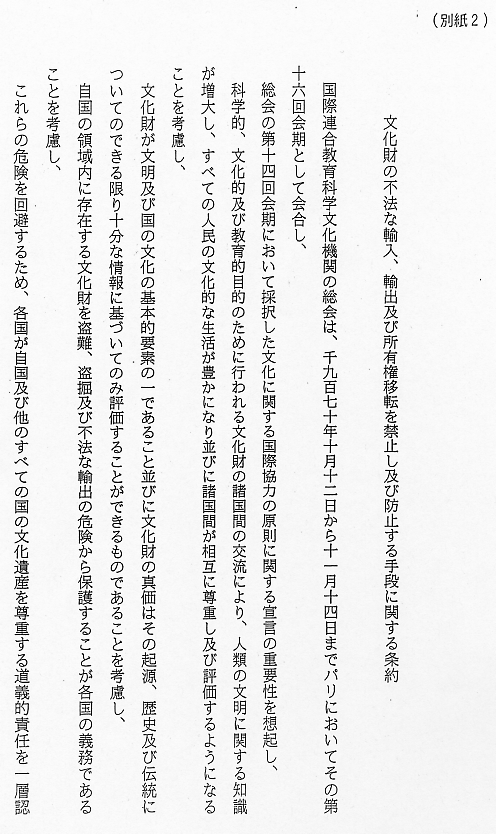 （別紙２）
文化財の不法な輸入、輸出及び所有権移転を禁止し及び防止する手段に関する条約
国際連合教育科学文化機関の総会は、千九百七十年十月十二日から十一月十四日までパリにおいてその第
十六回会期として会合し、
総会の第十四回会期において採択した文化に関する国際協力の原則に関する宣言の重要性を想起し、
科学的、文化的及び教育的目的のために行われる文化財の諸国間の交流により、人類の文明に関する知識
が増大し、すべての人民の文化的な生活が豊かになり並びに諸国間が相互に尊重し及び評価するようになる
ことを考慮し、
文化財が文明及び国の文化の基本的要素の一であること並びに文化財の真価はその起源、歴史及び伝統に
ついてのできる限り十分な情報に基づいてのみ評価することができるものであることを考慮し、
自国の領域内に存在する文化財を盗難、盗掘及び不法な輸出の危険から保護することが各国の義務である
ことを考慮し、
これらの危険を回避するため、各国が自国及び他のすべての国の文化遺産を尊重する道義的責任を一層認